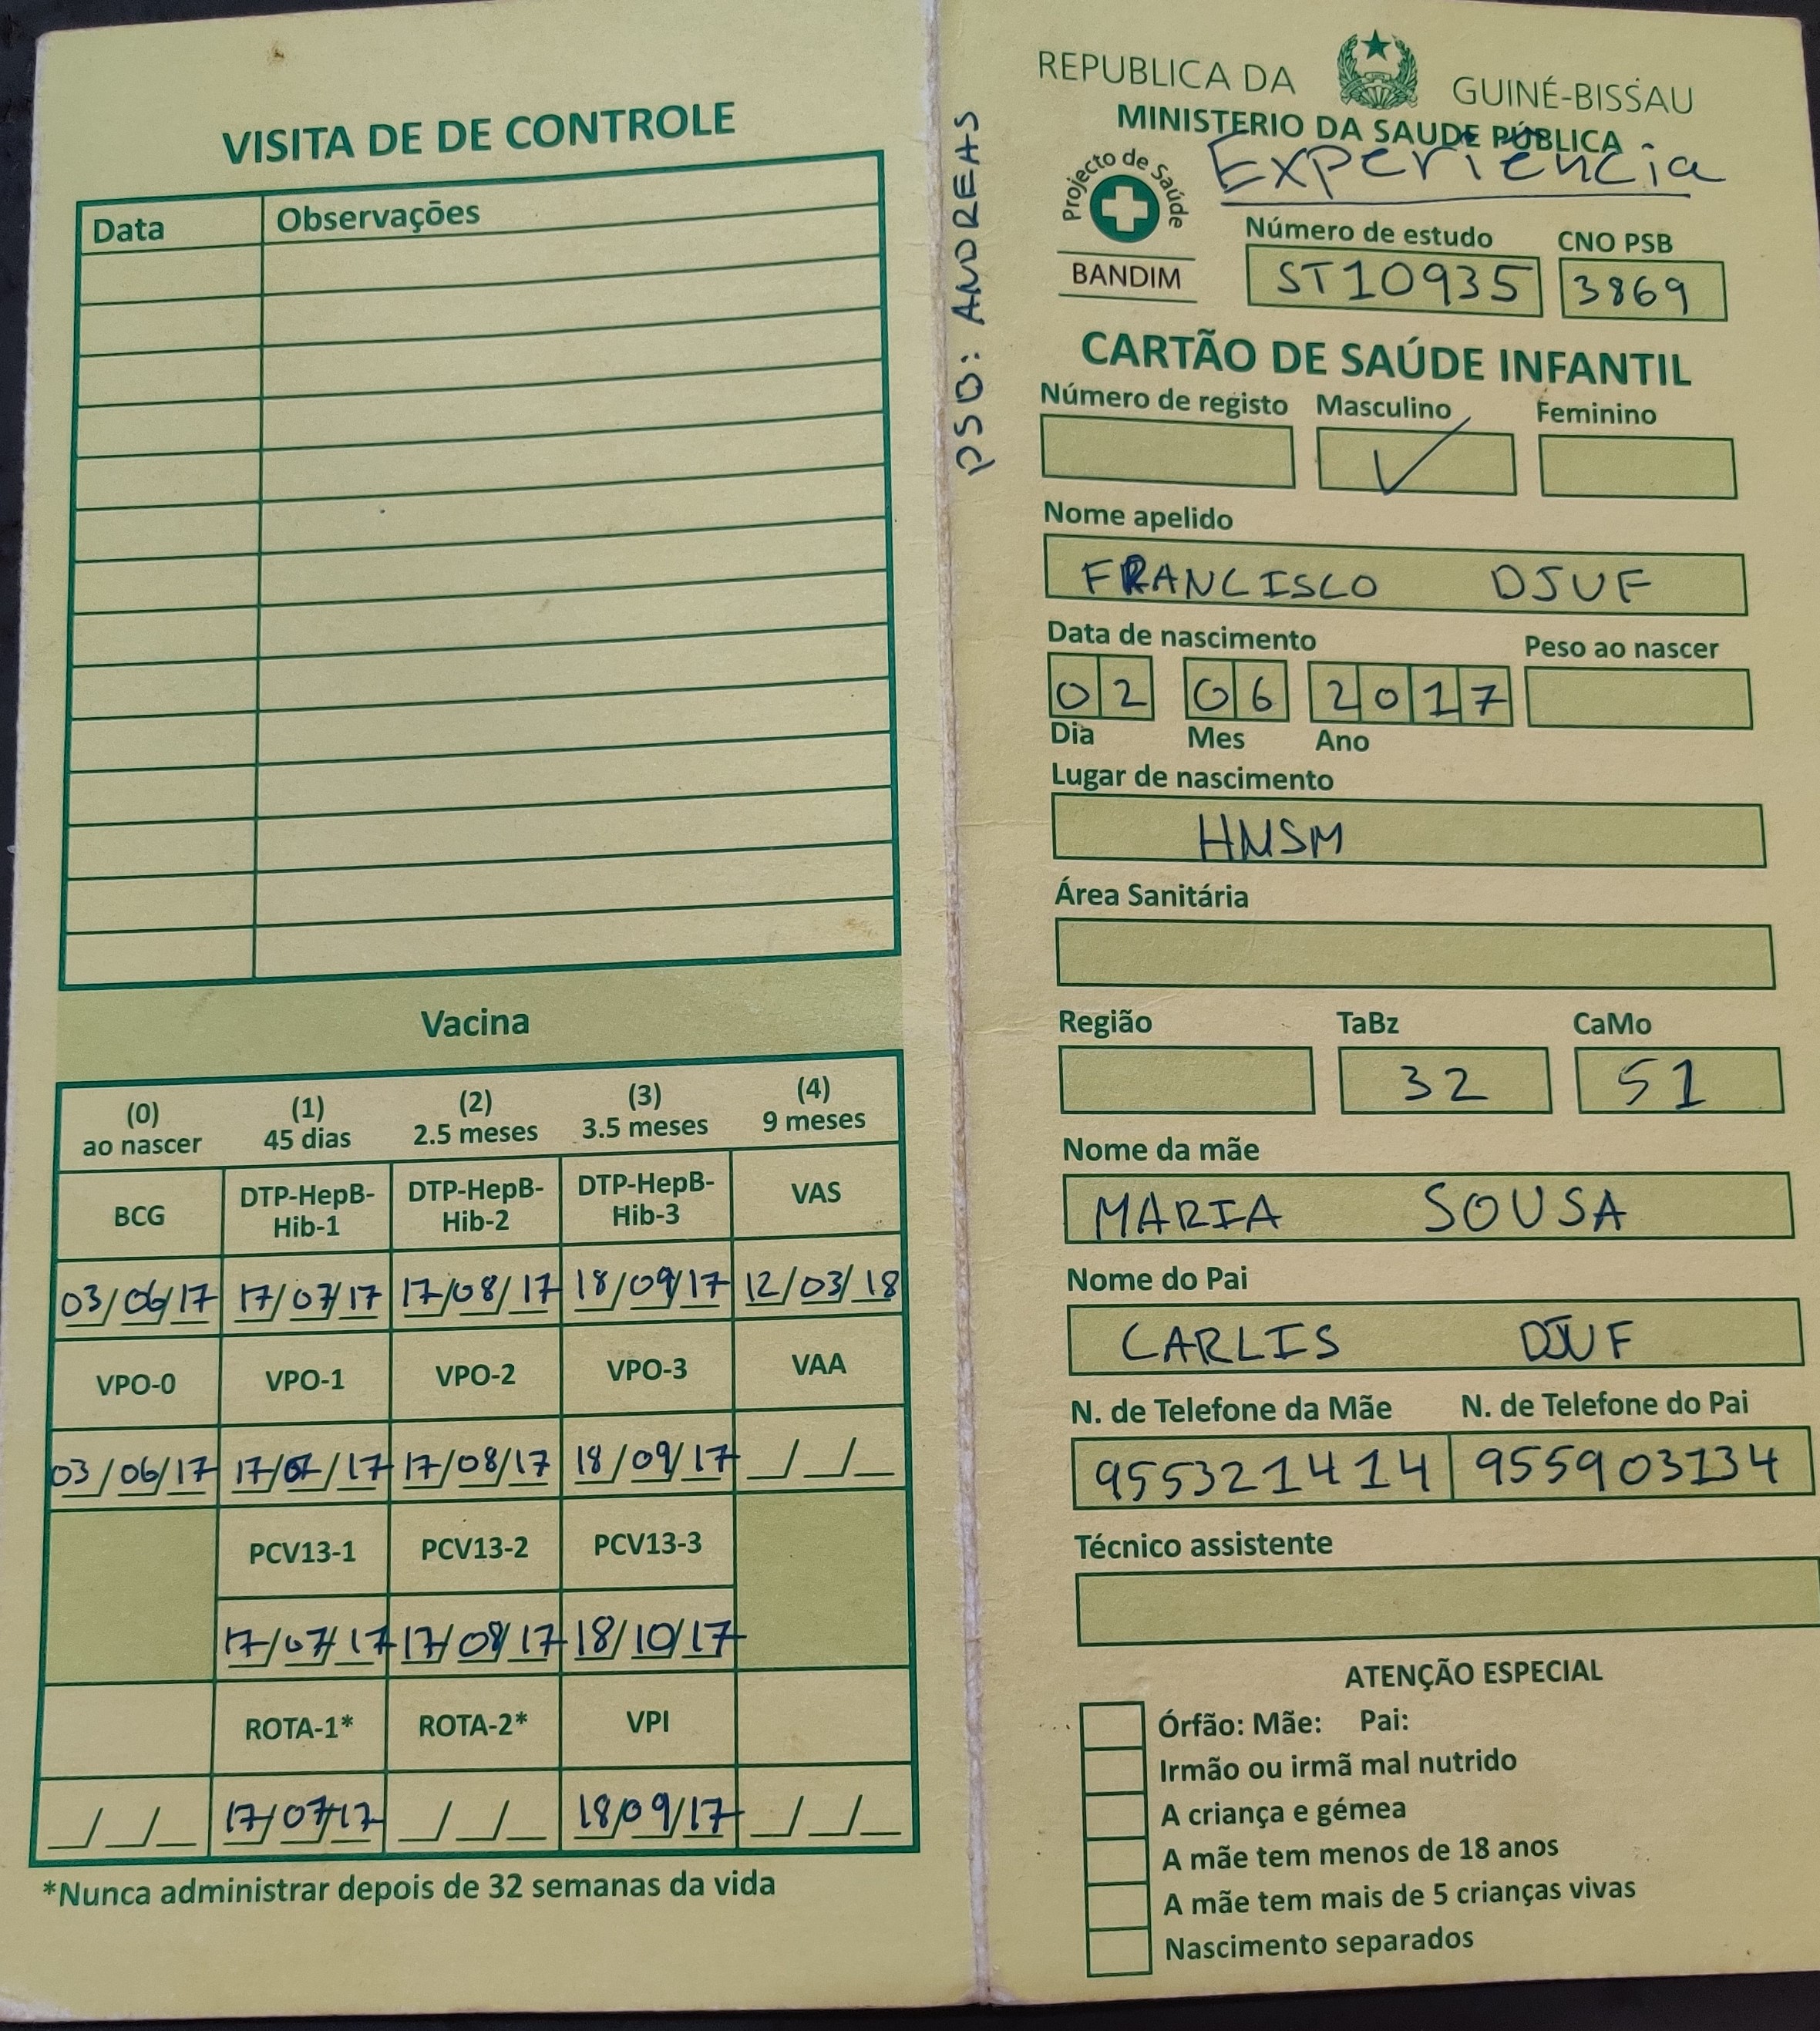 VISITA DE DE CONTROLE
Data Observações
Vacina
(0) (1) (2) (3) (4)
ao nascer 45 dias 2.5 meses 3.5 meses 9 meses
BCG DTP-HepB-Hib-1 DTP-HepB-Hib-2 DTP-HepB-Hib-3 VAS
03/06/17 17/07/17 17/08/17 18/09/17 12/03/18
VPO-0 VPO-1 VPO-2 VPO-3 VAA
03/06/17 17/07/17 17/08/17 18/09/17 _/_/_
PCV13-1 PCV13-2 PCV13-3
17/07/17 17/08/17 18/10/17
ROTA-1* ROTA-2* VPI
_/_/_ 17/07/17 _/_/_ 18/09/17 _/_/_
*Nunca administrar depois de 32 semanas da vida
PSB: ANDREAS
REPUBLICA DA GUINÉ-BISSAU
MINISTERIO DA SAUDE PÚBLICA
Experiencia
Projecto de Saúde
BANDIM
Número de estudo CNO PSB
ST10935 3869
CARTÃO DE SAÚDE INFANTIL
Número de registo Masculino Feminino
✓
Nome apelido
FRANCISCO DJUF
Data de nascimento Peso ao nascer
02 06 2017
Dia Mes Ano
Lugar de nascimento
HNSM
Área Sanitária
Região TaBz CaMo
32 51
Nome da mãe
MARIA SOUSA
Nome do Pai
CARLIS DJUF
N. de Telefone da Mãe N. de Telefone do Pai
955321414 955903134
Técnico assistente
ATENÇÃO ESPECIAL
Órfão: Mãe: Pai:
Irmão ou irmã mal nutrido
A criança e gémea
A mãe tem menos de 18 anos
A mãe tem mais de 5 crianças vivas
Nascimento separados